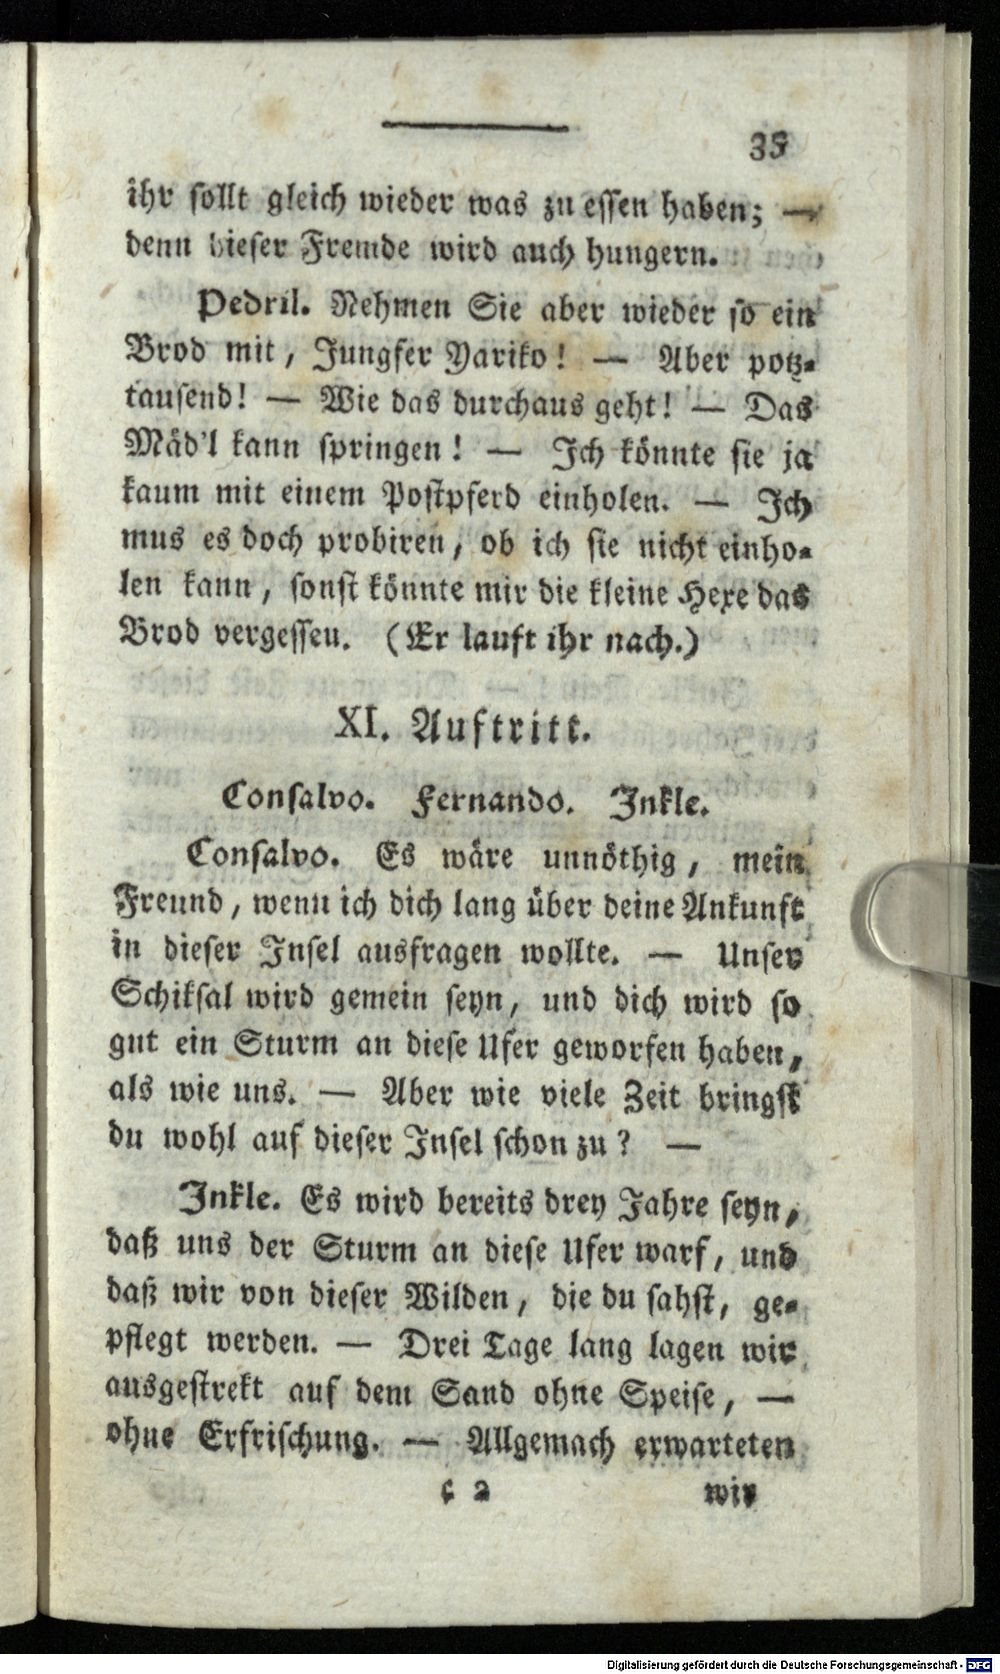 35
ihr sollt gleich wieder was zu essen haben; —
denn dieser Fremde wird auch hungern.
Pedril. Nehmen Sie aber wieder so ein
Brod mit, Jungfer Yariko! — Aber potz-
tausend! — Wie das durchaus geht! — Das
Mäd'l kann springen! — Ich könnte sie ja
kaum mit einem Postpferd einholen. — Ich
mus es doch probiren, ob ich sie nicht einho-
len kann, sonst könnte mir die kleine Hexe das
Brod vergessen. (Er lauft ihr nach.)
XI. Auftritt.
Consalvo. Fernando. Inkle.
Consalvo. Es wäre unnöthig, mein
Freund, wenn ich dich lang über deine Ankunft
in dieser Insel ausfragen wollte. — Unser
Schiksal wird gemein seyn, und dich wird so
gut ein Sturm an diese Ufer geworfen haben,
als wie uns. — Aber wie viele Zeit bringst
du wohl auf dieser Insel schon zu? —
Inkle. Es wird bereits drey Jahre seyn,
daß uns der Sturm an diese Ufer warf, und
daß wir von dieser Wilden, die du sahst, ge-
pflegt werden. — Drei Tage lang lagen wir
ausgestrekt auf dem Sand ohne Speise, —
ohne Erfrischung. — Allgemach erwarteten
c 2 wir
Digitalisierung gefördert durch die Deutsche Forschungsgemeinschaft - DFG